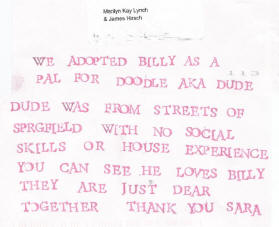 Marilyn Kay Lynch
& James Hirsch
WE ADOPTED BILLY AS A
PAL FOR DOODLE AKA DUDE
DUDE WAS FROM STREETS OF
SPRGFIELD WITH NO SOCIAL
SKILLS OR HOUSE EXPERIENCE
YOU CAN SEE HE LOVES BILLY
THEY ARE JUST DEAR
TOGETHER THANK YOU SARA